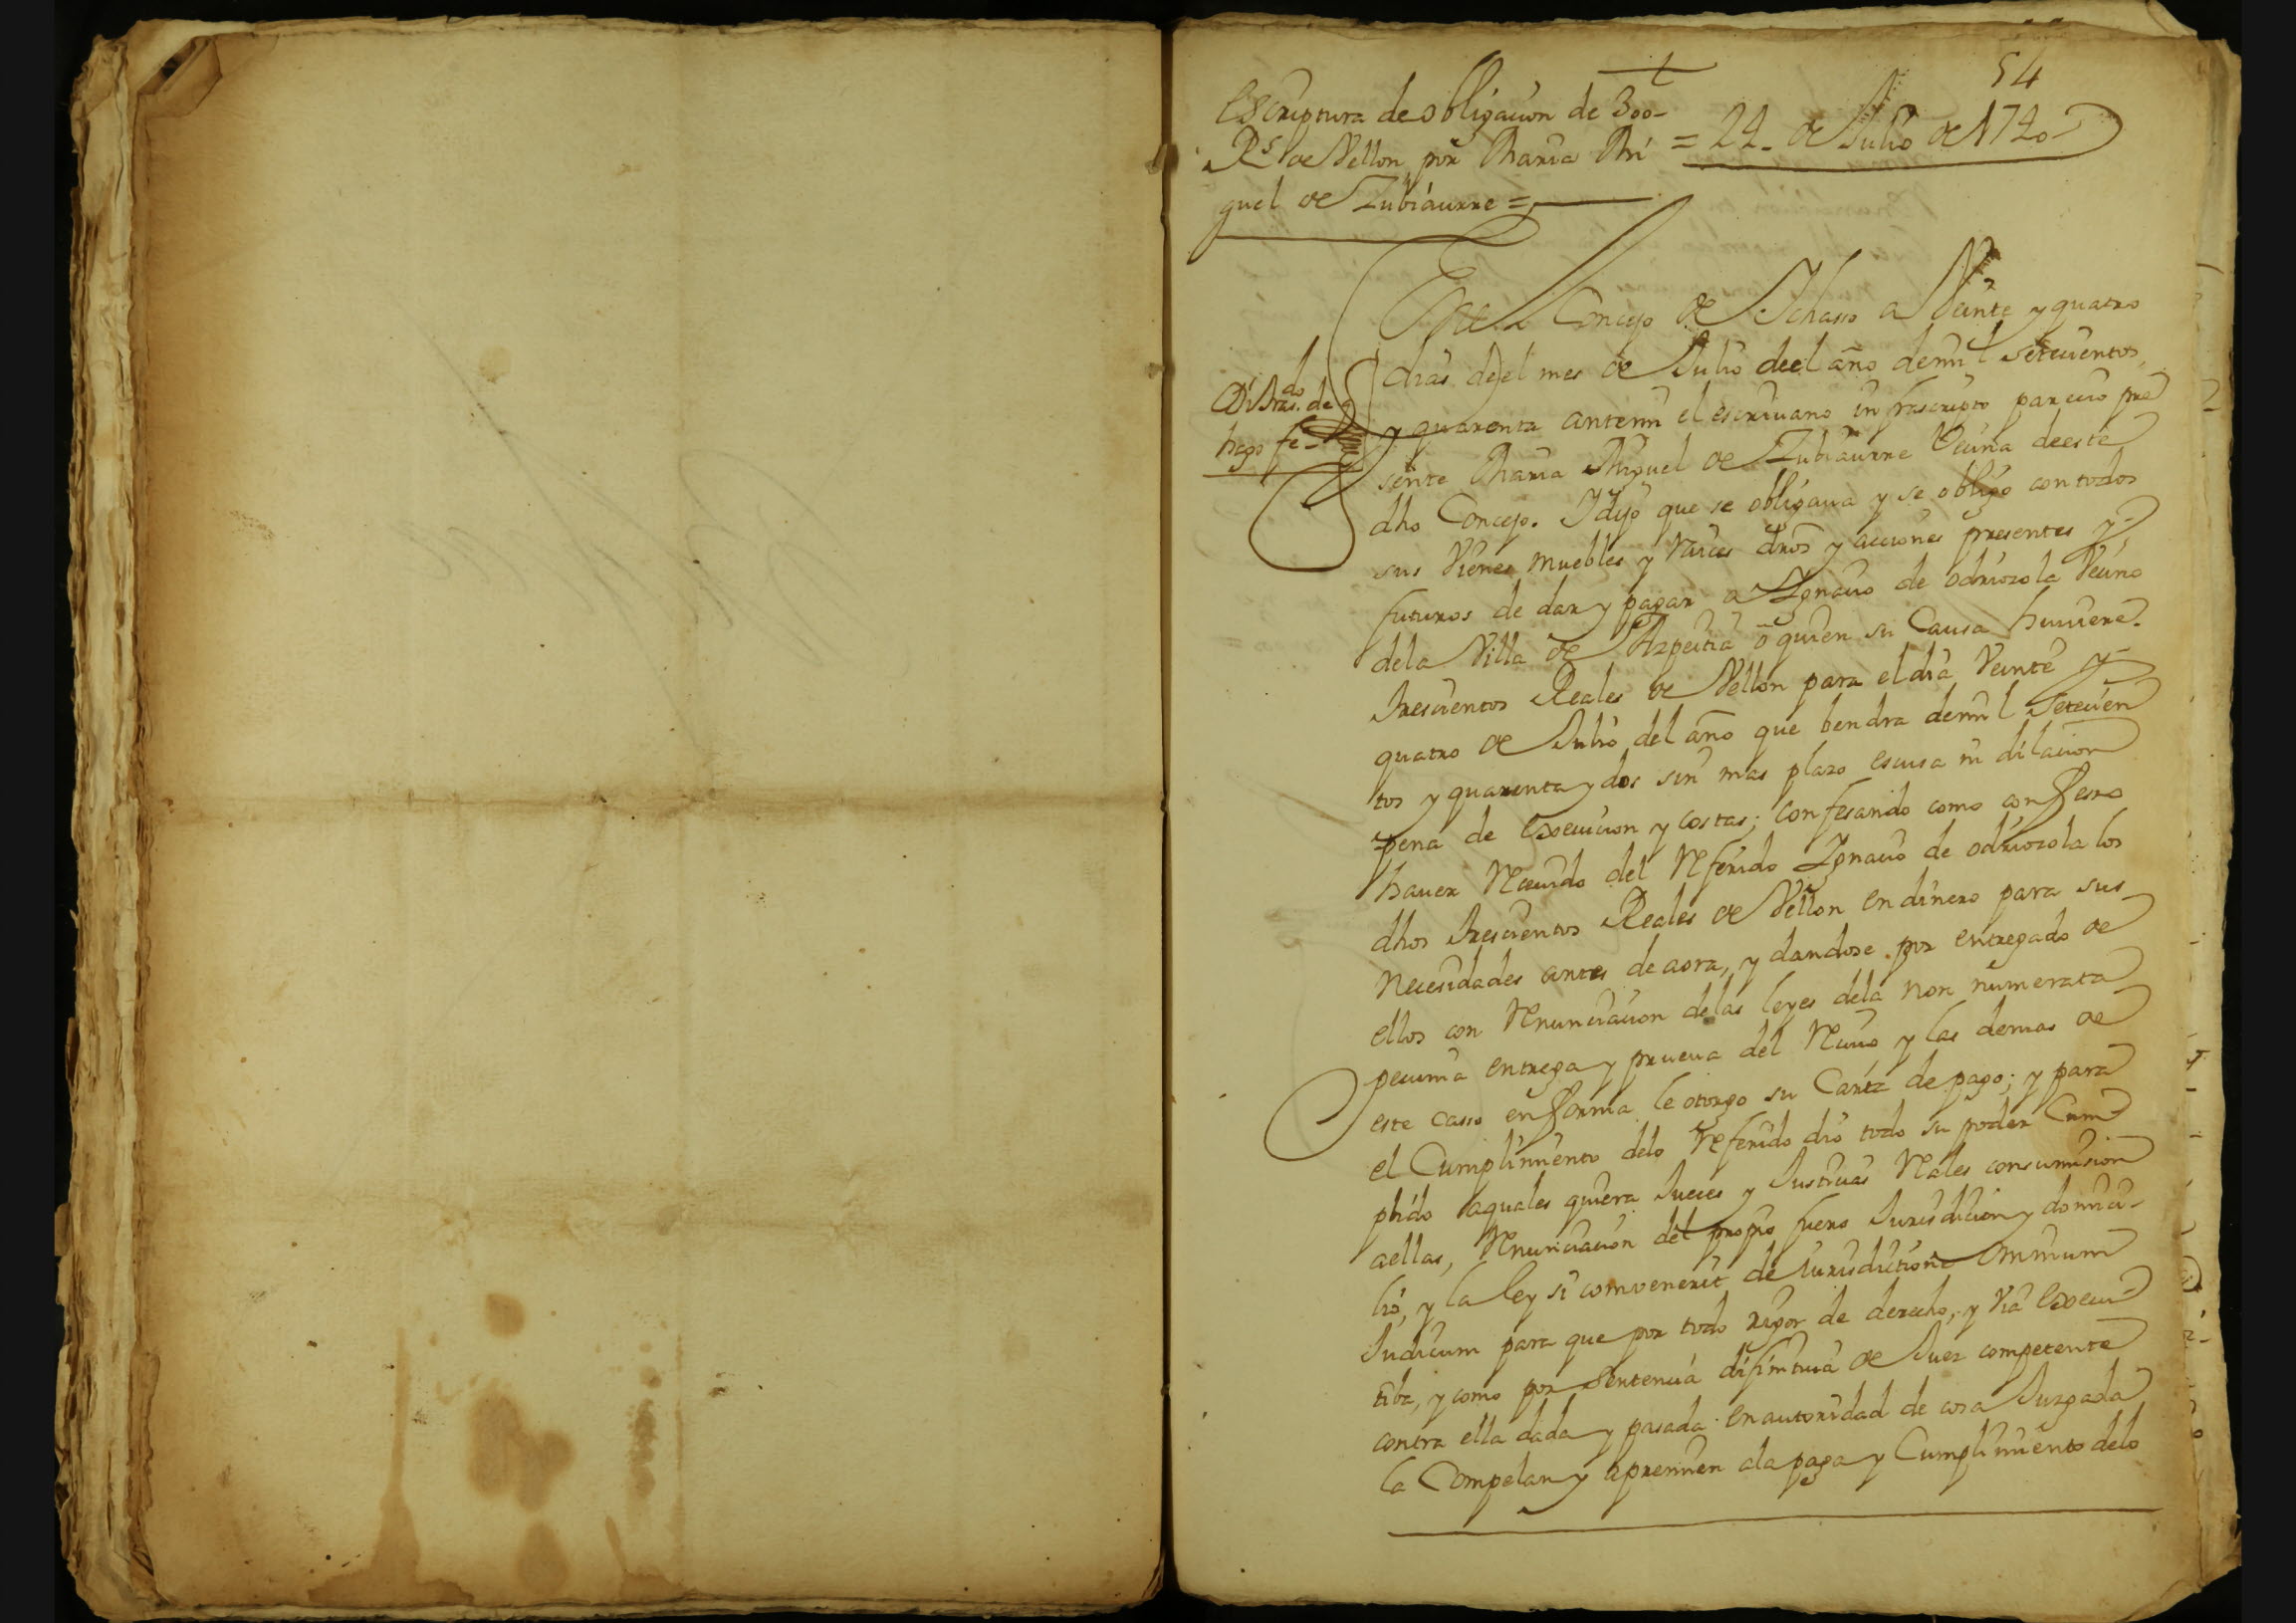 54
Escriptura de obligacion de 300-
Rs. de Vellon por Maria Mi = 24- de Julio de 1740
guel de Zubiaurre =
En el Concejo de Ichasso a Veinte y quatro
dias deel mes de Julio deel año de mil setecientos,
y quarenta antemi el escriuano infrascripto parecio pre
sente Maria Miguel de Zubiaurre Vecina deeste
dho Concejo. Idijo que se obligaua y se obligo con todos
sus Vienes muebles y raices dros y acciones presentes y
futuros de dar y pagar a Ignacio de odriozola Vecino
dela Villa de Azpeitia ô quien su Causa huuiere.
trescientos Reales de Vellon para el dia Veinte y
quatro de Julio del año que bendra de mil setecien
tos y quarenta y dos sin mas plazo escusa ni dilacion
pena de execucion y costas; confesando como confeso
hauer Reciuido del Referido Ignacio de odriozola los
dhos trescientos Reales de Vellon en dinero para sus
necesidades antes de aora, y dandose por entregado de
ellos con Renunciacion delas leyes dela non numerata
pecunia entrega y prueua del Reciuo y las demas de
este casso en forma le otorgo su Carta de pago; y para
el Cumplimiento delo Referido dio todo su poder Cum
plido aquales quiera Jueces y Justicias Reales consumision
aellas, Renunciacion del propio fuero Jurisdicion y domici-
lio, y la ley si comvenerit de iurisdictione omnium
Judicum para que por todo rigor de derecho, y via execu
tiba, y como por sentencia difinitiua de Juez competente
contra ella dada y pasada en autoridad de cosa Juzgada
la Compelan y apremien ala paga y Cumplimiento delo
do
Di tras. de q
hago fe-